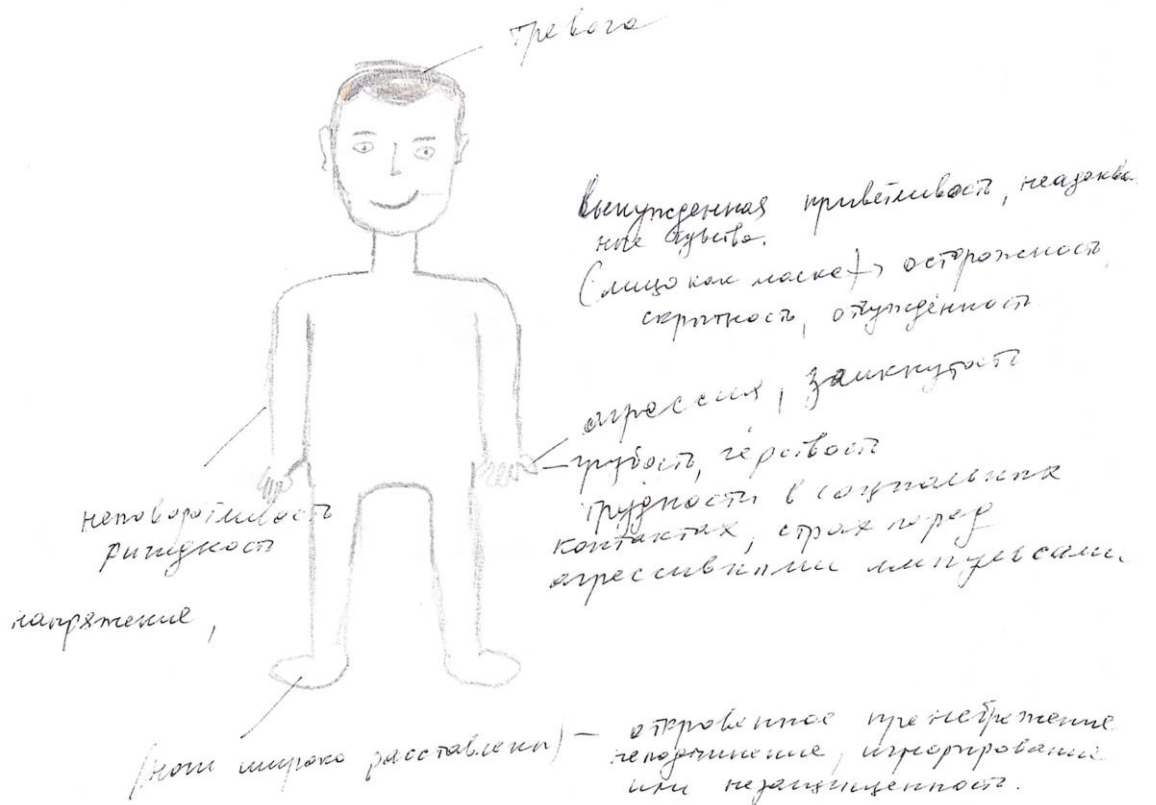 тревога
вынужденная приветливость, неадеква
ные чувства.
(лицо как маска) → осторожность,
скрытность, отчуждённость
агрессия, замкнутость
грубость, чёрствость
трудности в социальных
контактах, страх перед
агрессивными импульсами.
неповоротливость
ригидность
напряжение,
(ноги широко расставлены) – откровенное пренебрежение
неподчинение, игнорирование
или незащищенность.